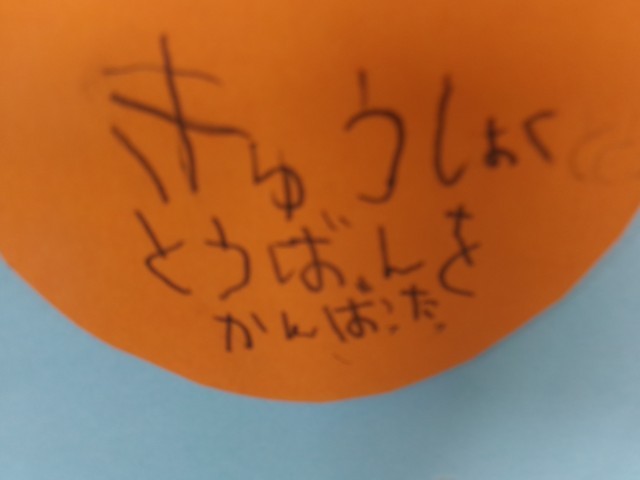 きゅうしょく
とうばんを
かんばった